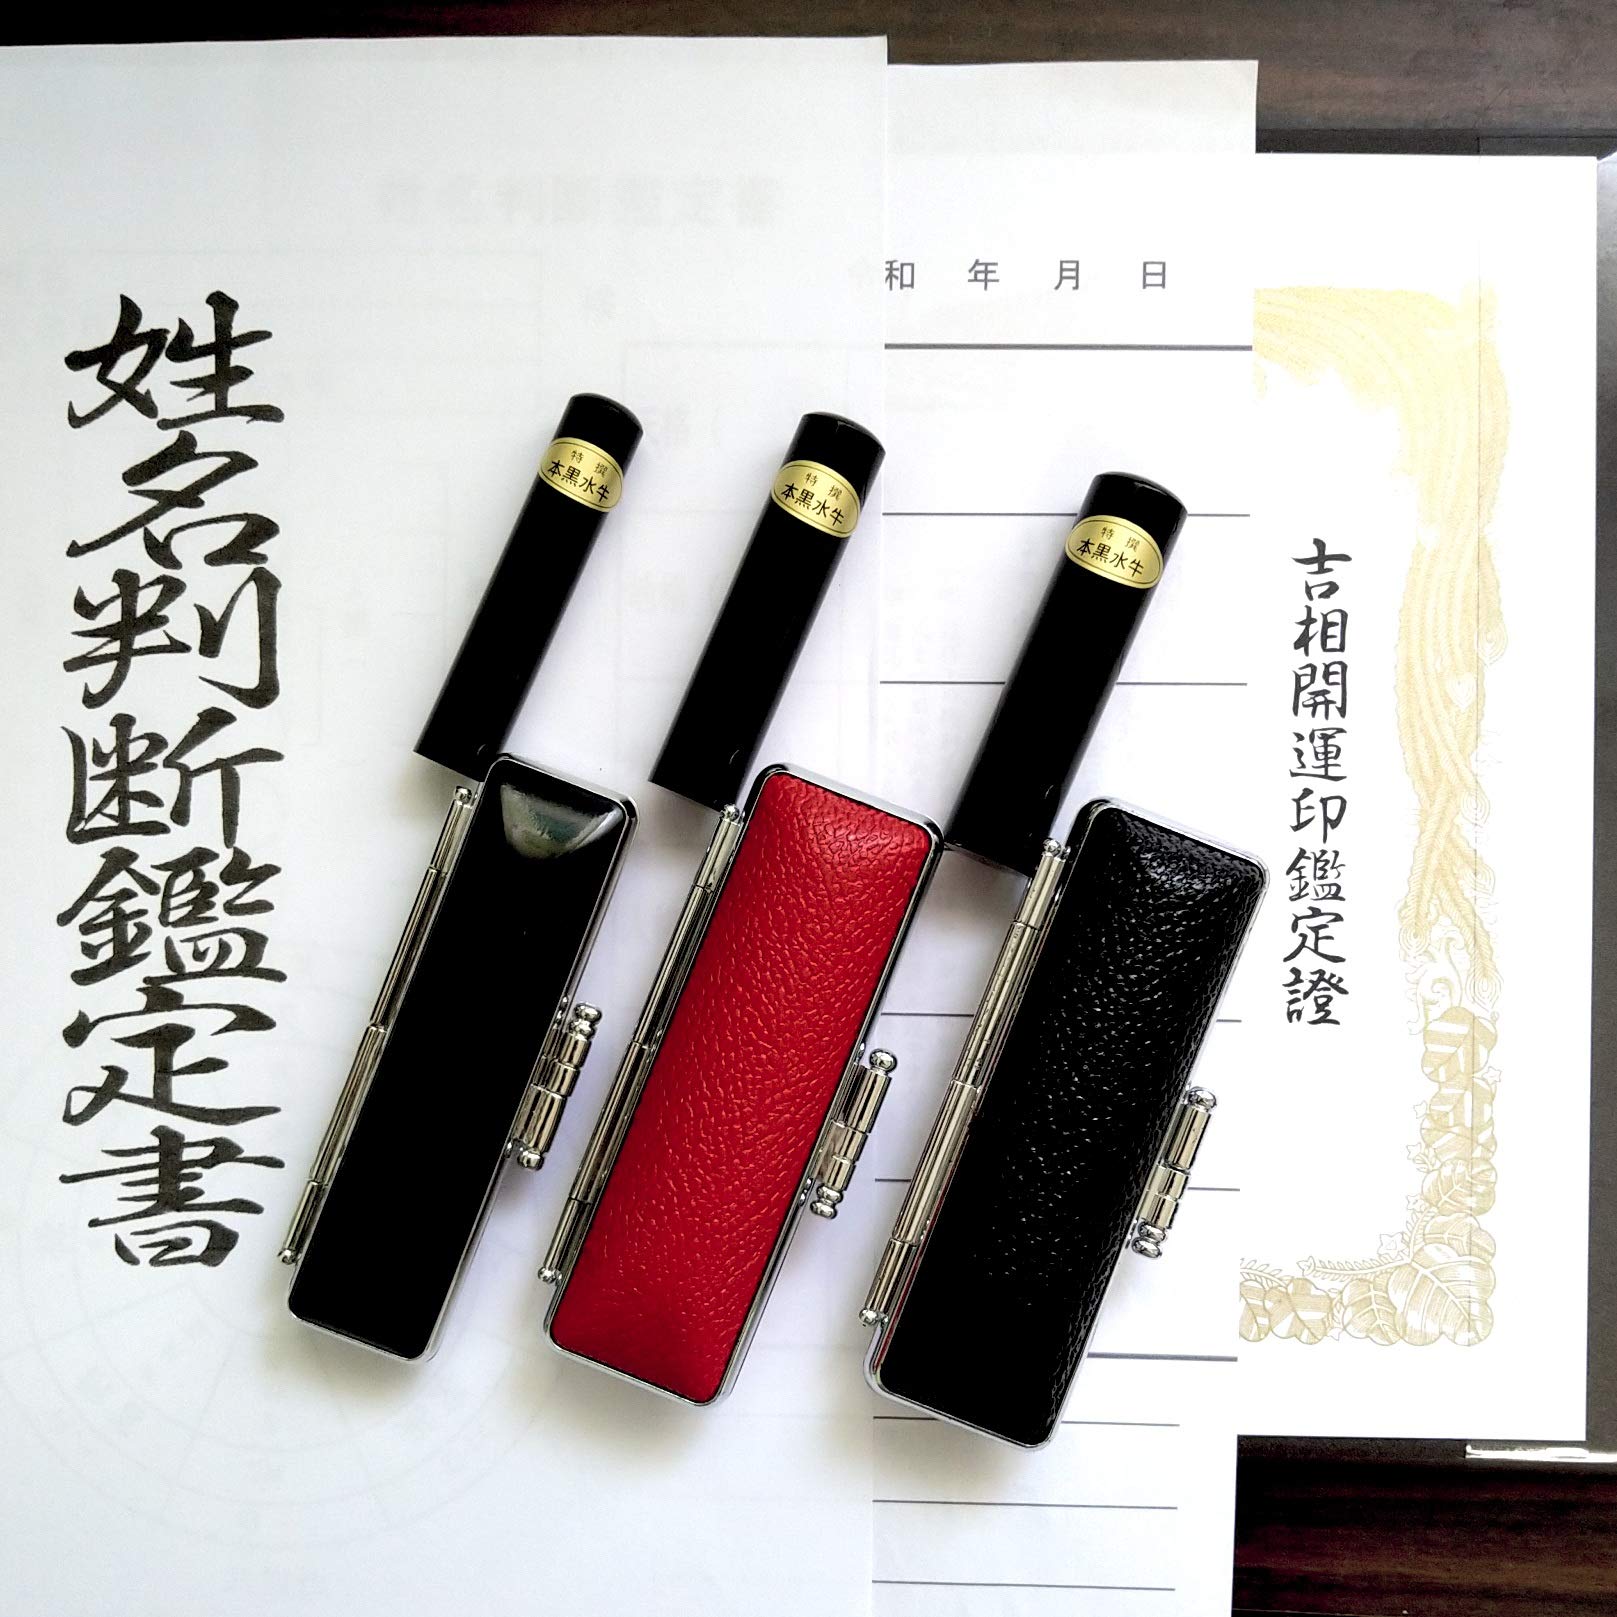 姓名判断鑑定書
特撰
本黒水牛
特撰
本黒水牛
特撰
本黒水牛
和 年 月 日
吉相開運印鑑定證